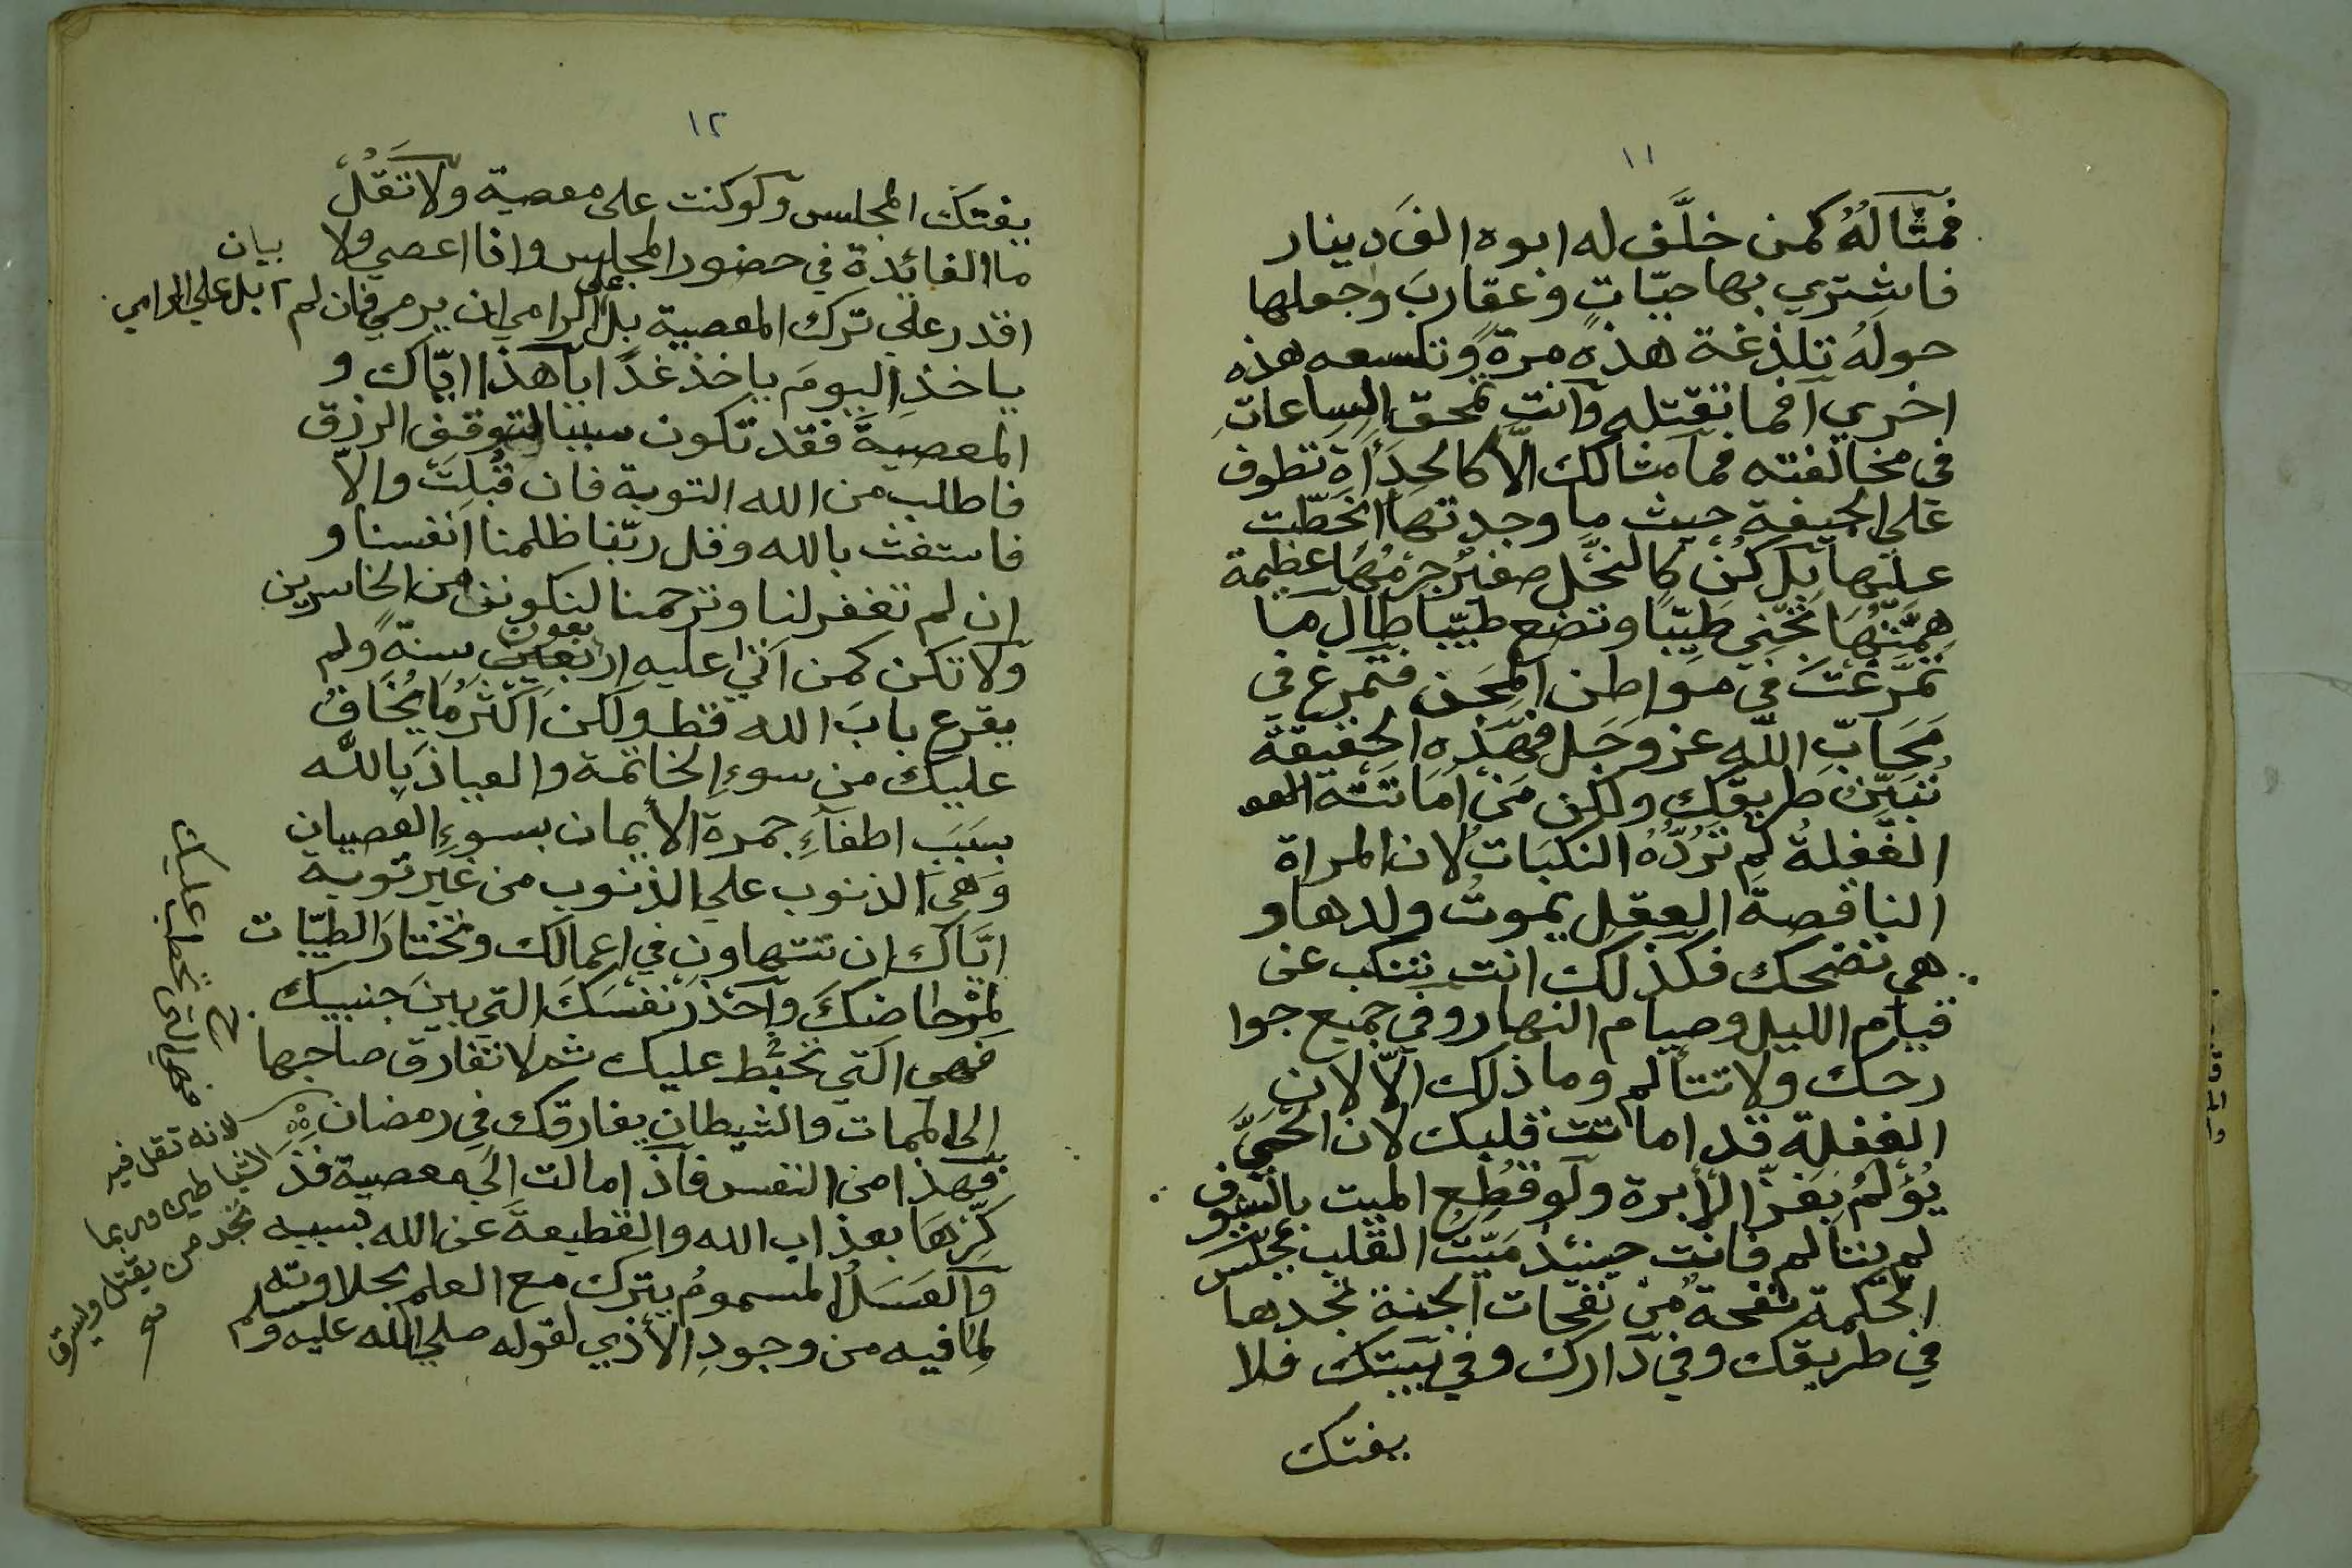 ١١
فمثاله كمن خلَّف له ابوه الفَ دينار
فاشتري بها حيّاتٍ وعقاربَ وجعلها
حولهُ تلذغة هذه مرةً وتلسعه هذه
اخري آفما تقتله وآنت تمحق الساعاتِ
في مخالفته فما مثالك الّا كالحِدَأةَ تطوف
علي الجيفة حيث ما وجدتها انحَطّت
عليها بل كن كالنحّل صغيرُ جِرمُهَا عظيمة
هِمَّتُهَا تجني طيّبًا وتضع طيّبا طال ما
تمرَّغتَ في مواطن المِحَن فتمرغ في
مَحَابّ اللّه عز وجَل فهَذه الحقيقة
تُبَيّن طريقك ولكن مَن امَاتته
الغفلةُ لم تَرُدُّهُ النكبَات لان المراة
الناقصةَ العقل يموتُ ولدها و
هي تضحك فكذلك انت تنكب عن
قيام الليل وصيام النهار وفي جميع جوا
رحك ولا تتألم وما ذلك الّا لان
الغفلة قد اماتت قلبك لان الحَيَّ
يُؤلمُ بَغزّ الأبرة ولو قطع الميت بالسيوف
لم يتالم فانت حينئذ ميّتُ القلب مجلس
الحكمة نفحةٌ من نفحات الجنة تجدها
في طريقك وفي دَارك وفي بيتك فلا
يفتك
١٢
يفتكَ المجلس ولو كنت على معصية ولا تَقُلْ
ما الفائدة في حضور المجلس وانا اعصي ولا
بيان
اقدر علي ترك المعصية بل على الرامي ان يرمي فان لم
بل علي الرامي
ياخذِ اليومَ ياخذ غدًا يا هذا ايّاك و
المعصيةَ فقد تكون سببا لتوقف الرزق
فاطلب من الله التوبة فان قُبِلتَ والّا
فاستغث بالله وقل ربّنا ظلمنا انفسنا و
ان لم تغفر لنا وترحمنا لنكونن من الخاسرين
ولا تكن كمن آتي عليه اربعين بعون سنةً ولم
يقرع بابَ الله قط ولكن اكثرُ ما يُخَافُ
عليك من سوءِ الخاتمة والعياذ بِاللّه
بسبَب اطفآءِ جمرة الأيمان بسوءِ العصيان
وَهيَ الذنوب علي الذنوب من غير توبة
ايَّاك ان تتهاون في اعمالك وتختارَ الطيّبات
واحذر نفسَكَ التي بين جنبيك
فهي التي تخبط عليك ثم لا تفارق صاحبها
الى الممات والشيطان يفارقك في رمضان
فهذا من النفس فاذا مالت الي معصية فذ
كّرهَا بعذاب الله والقطيعة عن الله بسببه
والعَسَلُ المسموم يترك مع العلم بحلاوته
لما فيه من وجودِ الأذي لقوله صلي الله عليه وسلم
فهي التي تحطب عليك
لانه تقل فيه
الشياطين وربما
تجد من يقتل ويسرق